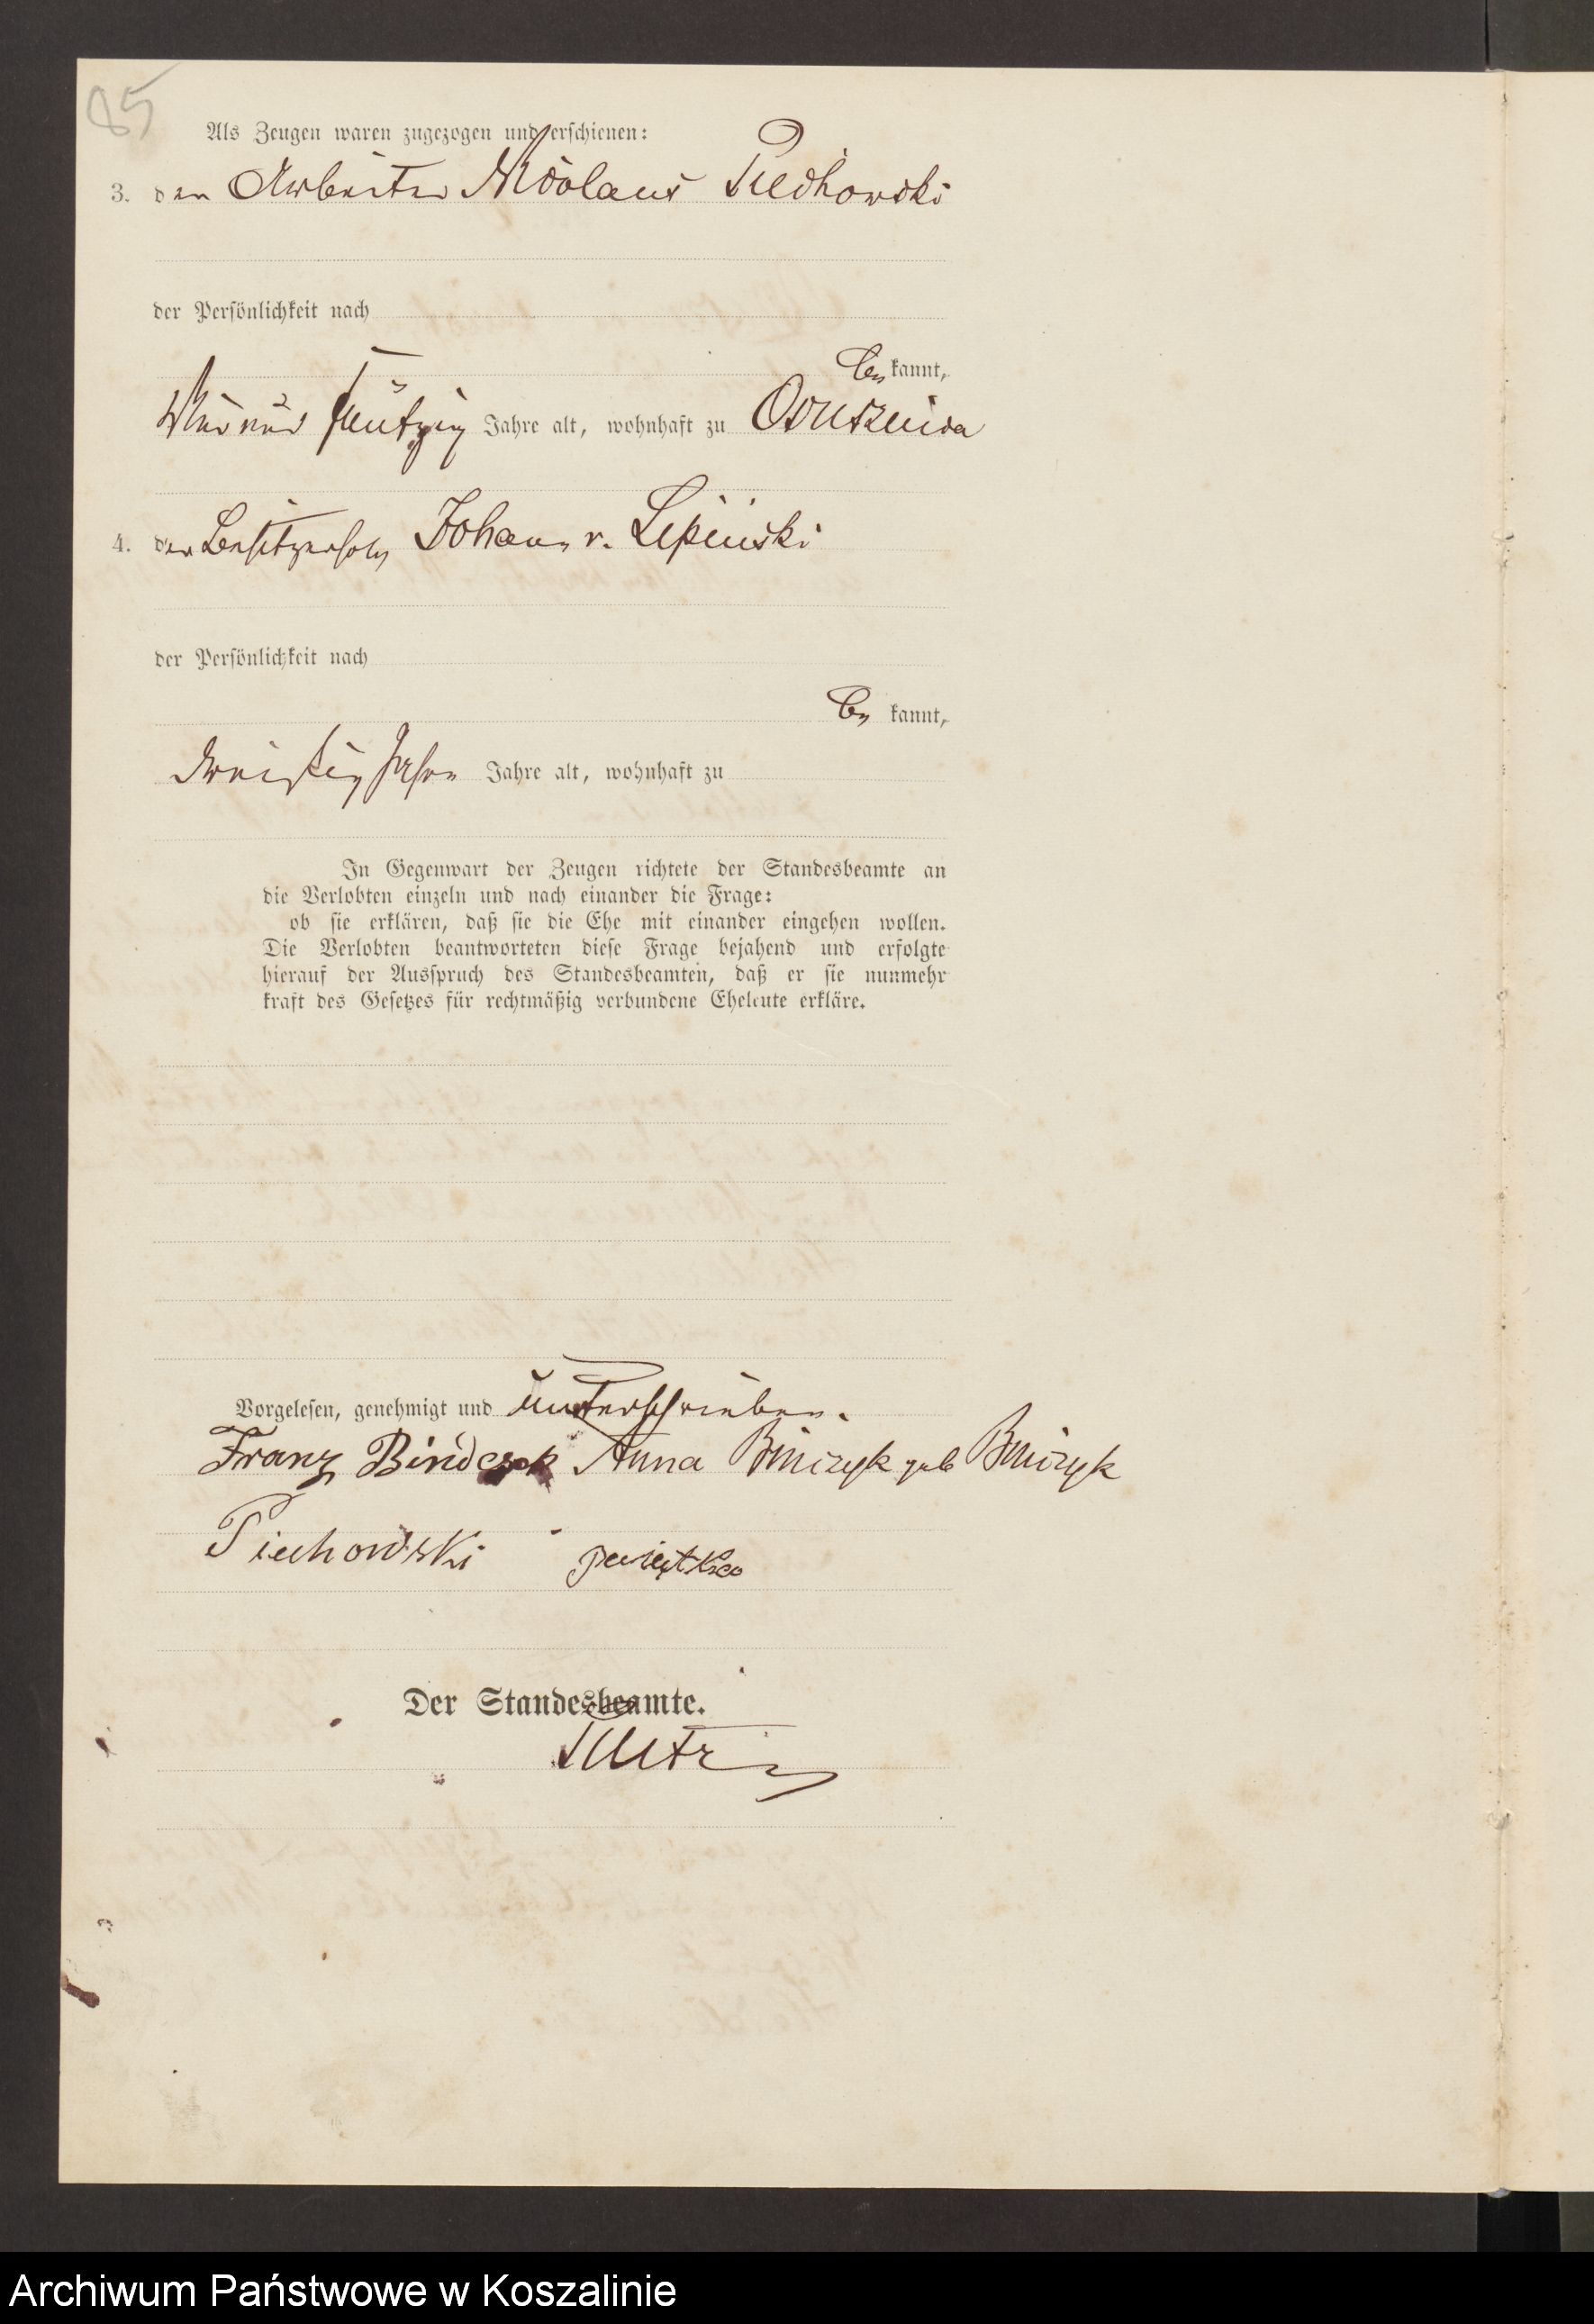 85
Als Zeugen waren zugezogen und erschienen:
3. den Arbeiter Nicolaus Piechowski
der Persönlichkeit nach
be kannt,
Jahre alt, wohnhaft zu
4. den Besitzersohn Johann v. Lipinski
der Persönlichkeit nach
be kannt,
dreißig Jahre Jahre alt, wohnhaft zu
In Gegenwart der Zeugen richtete der Standesbeamte an
die Verlobten einzeln und nach einander die Frage:
ob sie erklären, daß sie die Ehe mit einander eingehen wollen.
Die Verlobten beantworteten diese Frage bejahend und erfolgte
hierauf der Ausspruch des Standesbeamten, daß er sie nunmehr
kraft des Gesetzes für rechtmäßig verbundene Eheleute erkläre.
Vorgelesen, genehmigt und unterschrieben.
Franz Anna geb
Piechowski
Der Standesbeamte.
Archiwum Państwowe w Koszalinie